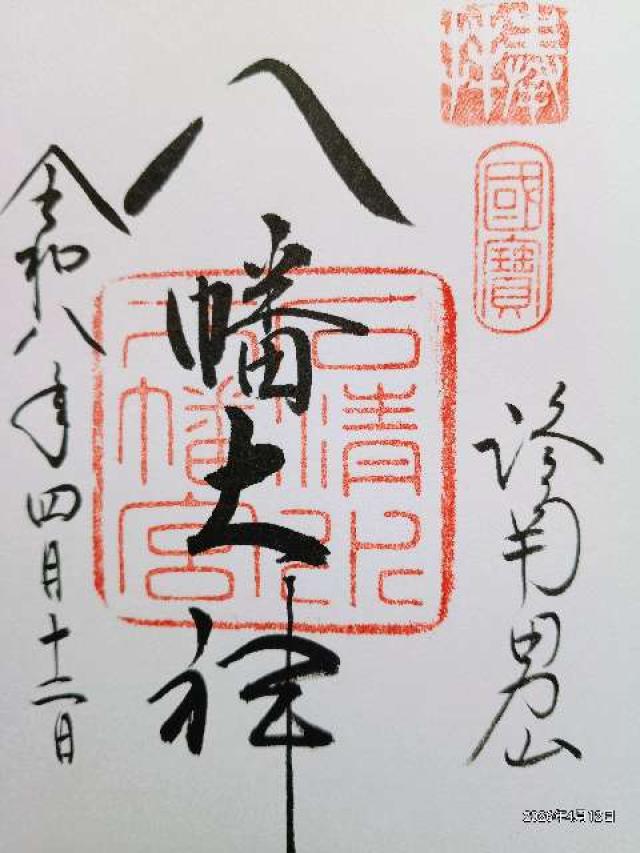 奉拝
國寶
洛南男山
八幡大神
石清水八幡宮
令和八年四月十二日
2026年4月12日